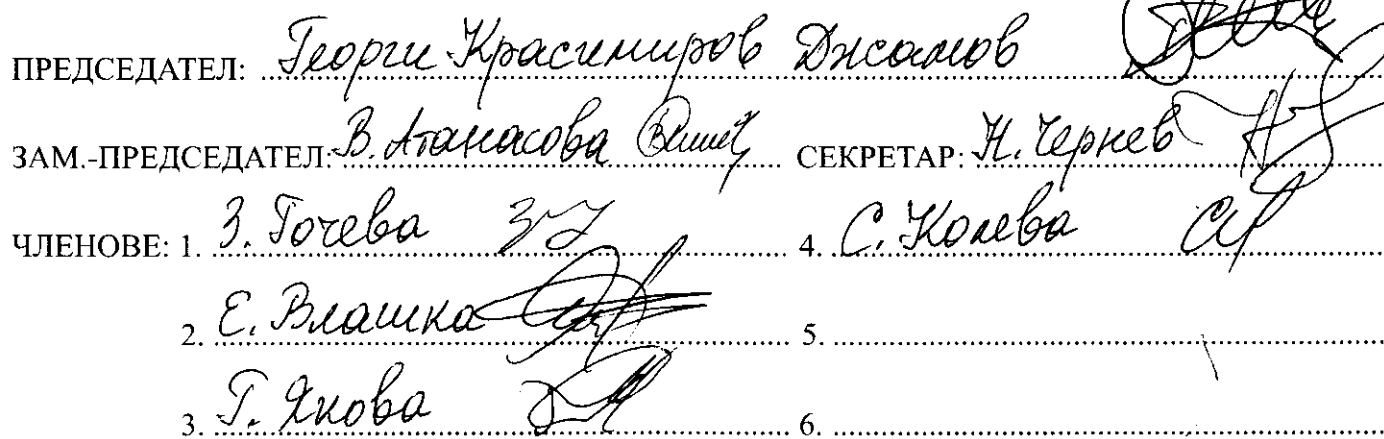 ПРЕДСЕДАТЕЛ: Георги Красимиров Джамов
ЗАМ.-ПРЕДСЕДАТЕЛ: В. Атанасова СЕКРЕТАР: Н. Чернев
ЧЛЕНОВЕ: 1. З. Гочева 4. С. Колева
2. Е. Влашка 5.
3. Г. Якова 6.